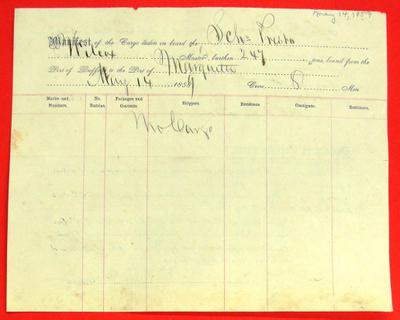 May 14, 1859
Manifest of the Cargo taken on board the Schr Presto
Wilcox Master, burthen 247 tons, bound from the
Port of Buffalo to the Port of Marquette
May 14 1859 Crew 8 Men
Marks and Numbers. No. Entries. Packages and Contents. Shippers. Residence. Consignee. Residence.
No Cargo